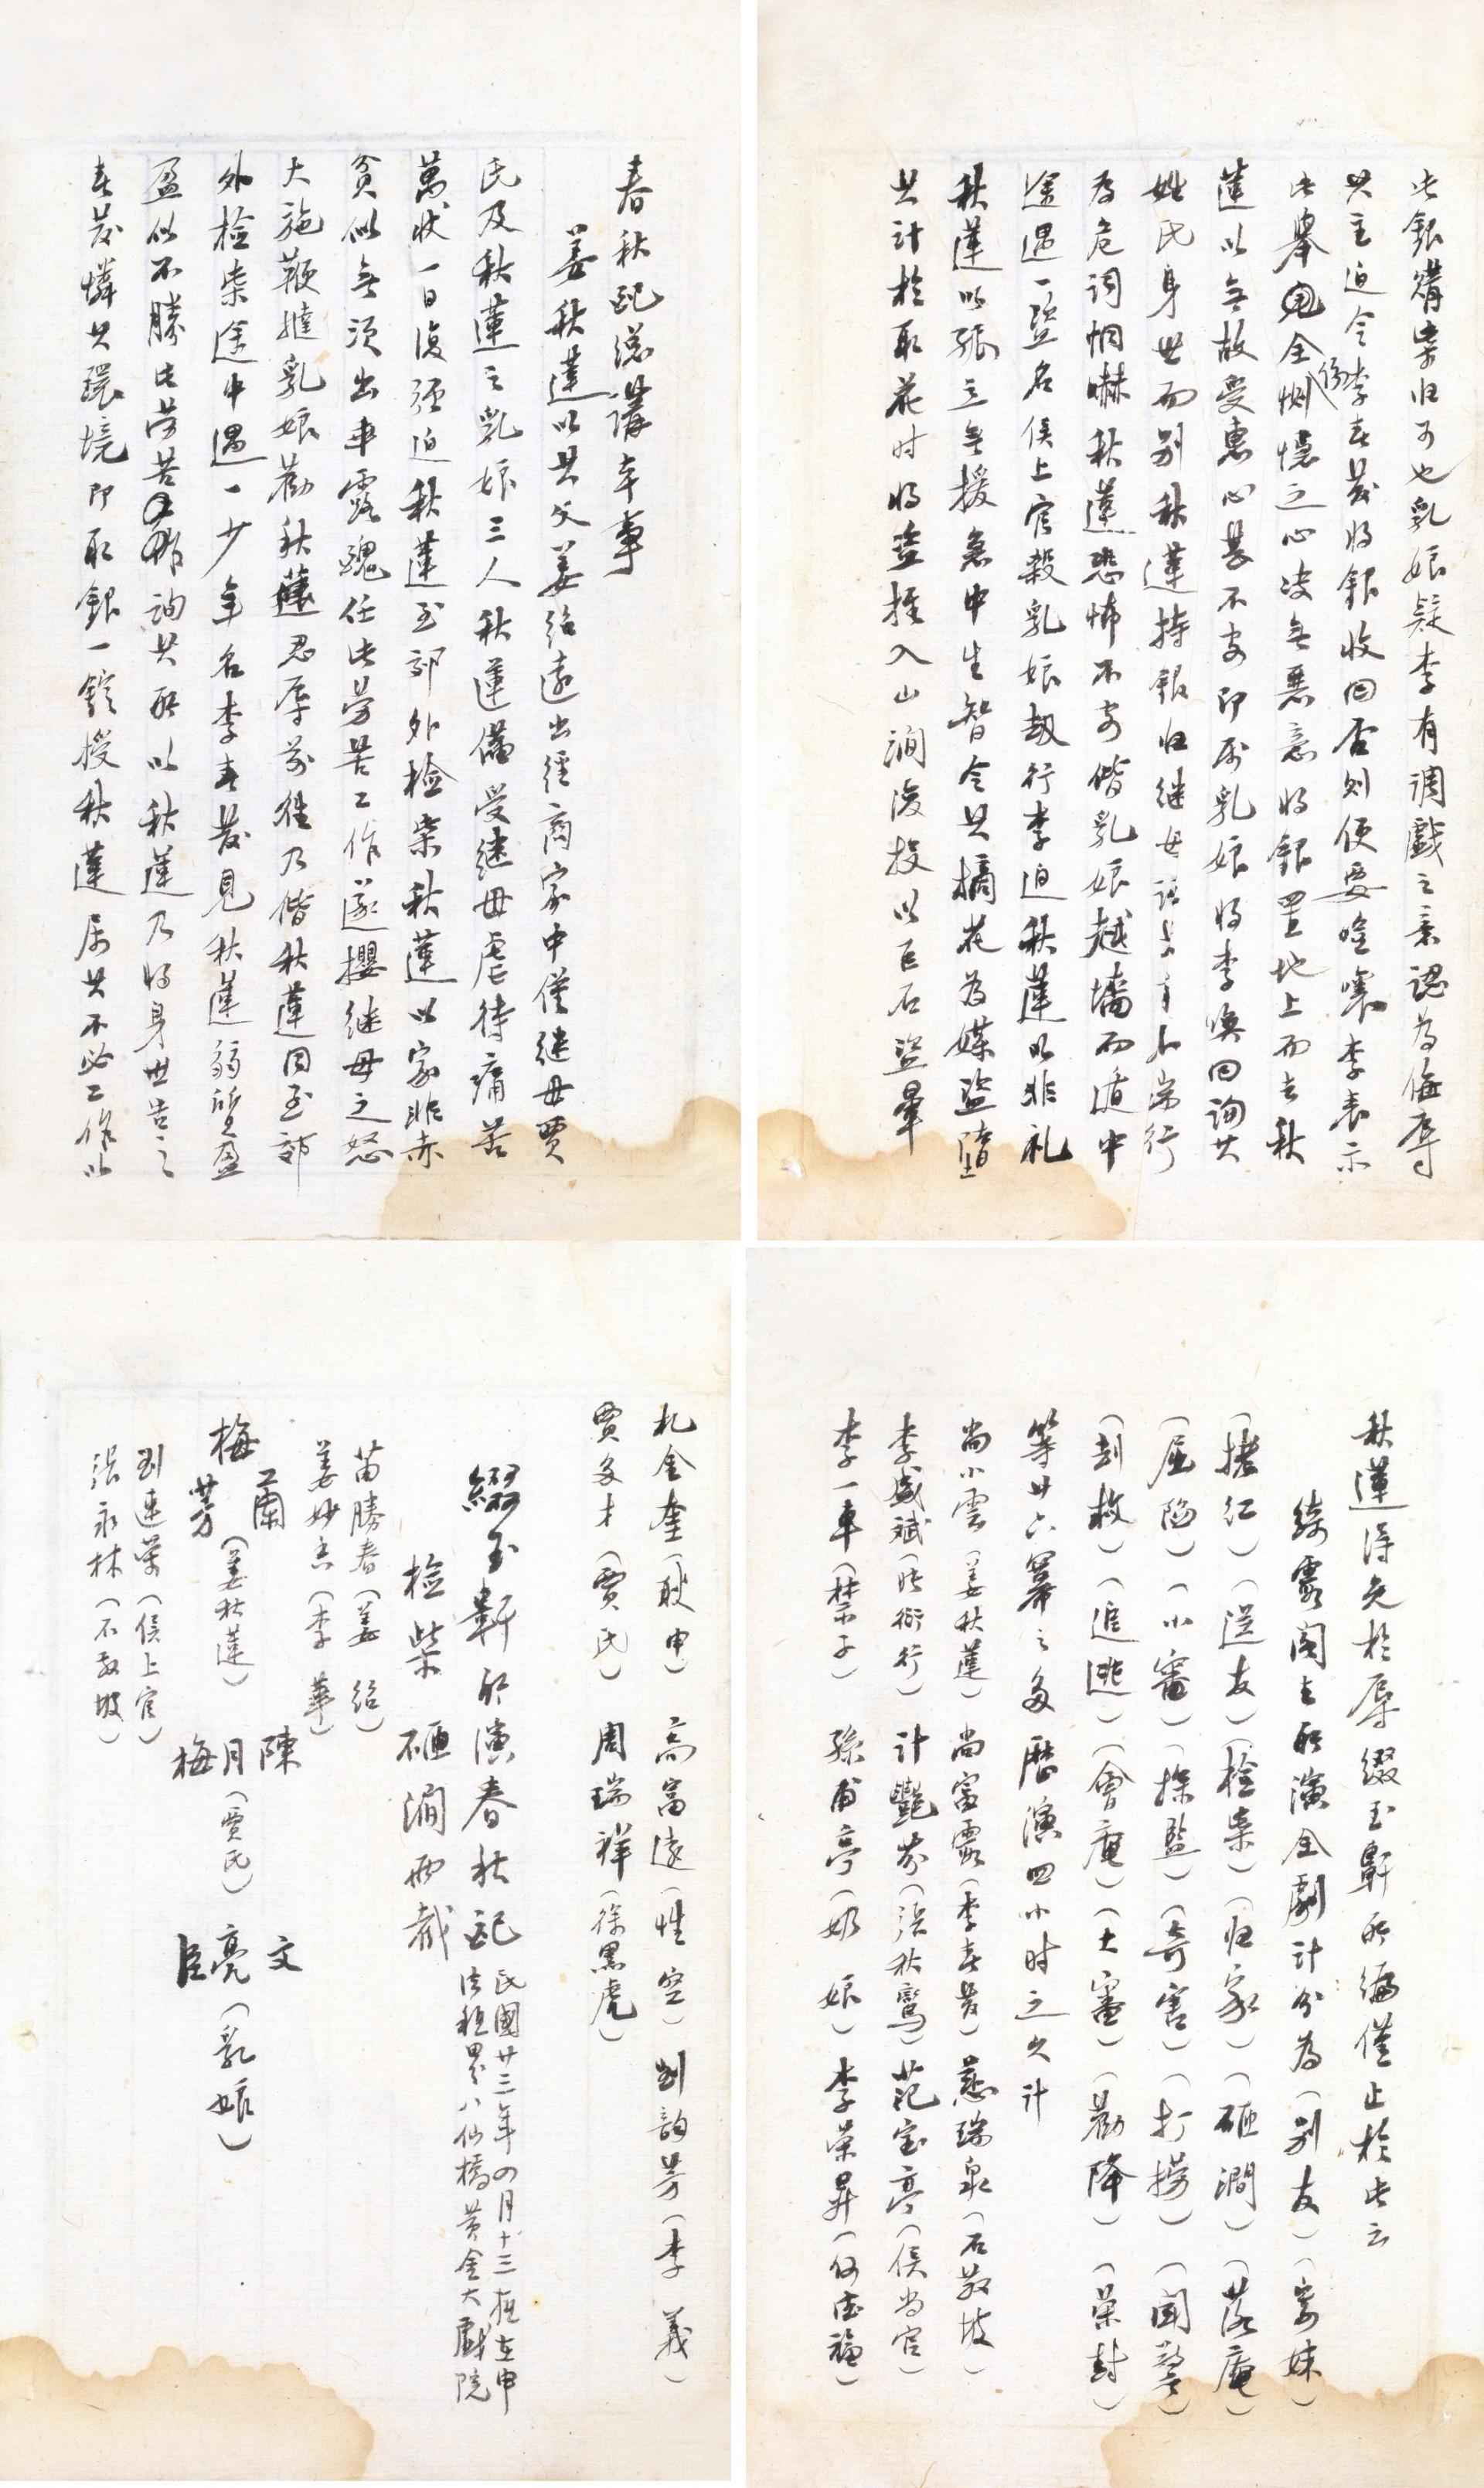 春秋配總講本事
姜秋蓮以其父姜紹遠出經商家中僅繼母賈
氏及秋蓮之乳娘三人秋蓮備受繼母虐待痛苦
萬狀一日復強迫秋蓮至郊外檢柴秋蓮以家非赤
貧似無須出乖露醜任此勞苦工作遂攖继母之怒
大施鞭撻乳娘勸秋蓮忍辱前往乃偕秋蓮同至郊
外檢柴途中遇一少年名李春發見秋蓮弱質盈
盈似不勝此勞苦詢其所以秋蓮乃将身世告之
春發憐其環境即取銀一錠授秋蓮属其不必工作以
此銀購柴归可也乳娘疑李有調戲之意認為侮辱
其主迫令李春發将銀收回否则便要喧嚷李表示
此舉全恻隱之心决無惡意将銀置地上而去秋
蓮以無故受惠心甚不安即属乳娘将李喚回詢其
姓氏身世而别秋蓮持銀归继母誣其行
為危詞恫嚇秋蓮悲怖不安偕乳娘越墻而逃中
途遇一盗名侯上官殺乳娘劫行李迫秋蓮以非礼
秋蓮以孤立無援急中生智令其摘花為媒盜墮
其計於取花时将盜推入山澗復投以巨石盜暈
秋蓮得免於辱綴玉軒所編僅止於此云
綺霞閣主所演全劇計分為（别友）（寄妹）
（摟红）（送友）（檢柴）（归家）（砸澗）（落庵）
（屈陷）（小審）（探監）（奇害）（打撈）（聞警）
（刮救）（追逃）（會庵）（大審）（勸降）（榮封）
等廿六幕之多歷演四小时之久计
尚小雲（姜秋蓮）尚富霞（李春發）慈瑞泉（石敬坡）
李盛斌（張衍行）计艷芬（張秋鸞）范宝亭（侯尚官）
李一車（禁子）孫甫亭（奶娘）李荣昇（何德福）
札金奎（耿申）高富遠（性空）劉韵芳（李義）
賈多才（賈氏）周瑞祥（徐黑虎）
綴玉軒所演春秋配民國廿三年四月十三夜在申
法租界八仙橋黃金大戲院
檢柴砸澗兩截
苗勝春（姜紹）
姜妙香（李華）
梅蘭芳（姜秋蓮）陳月梅（賈氏）文亮臣（乳娘）
劉連榮（侯上官）
張永林（石敬坡）